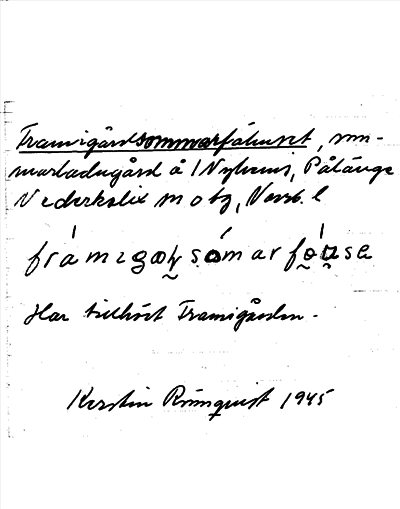 Framigårdsommarfähuset, som-
marladugård å 1 Nyhems, Pålänge
Nederkalix sn o tg, Norrb. l
framigaɖsomarfəuse
Har tillhört Framigården.
Kerstin Rönnqvist 1945